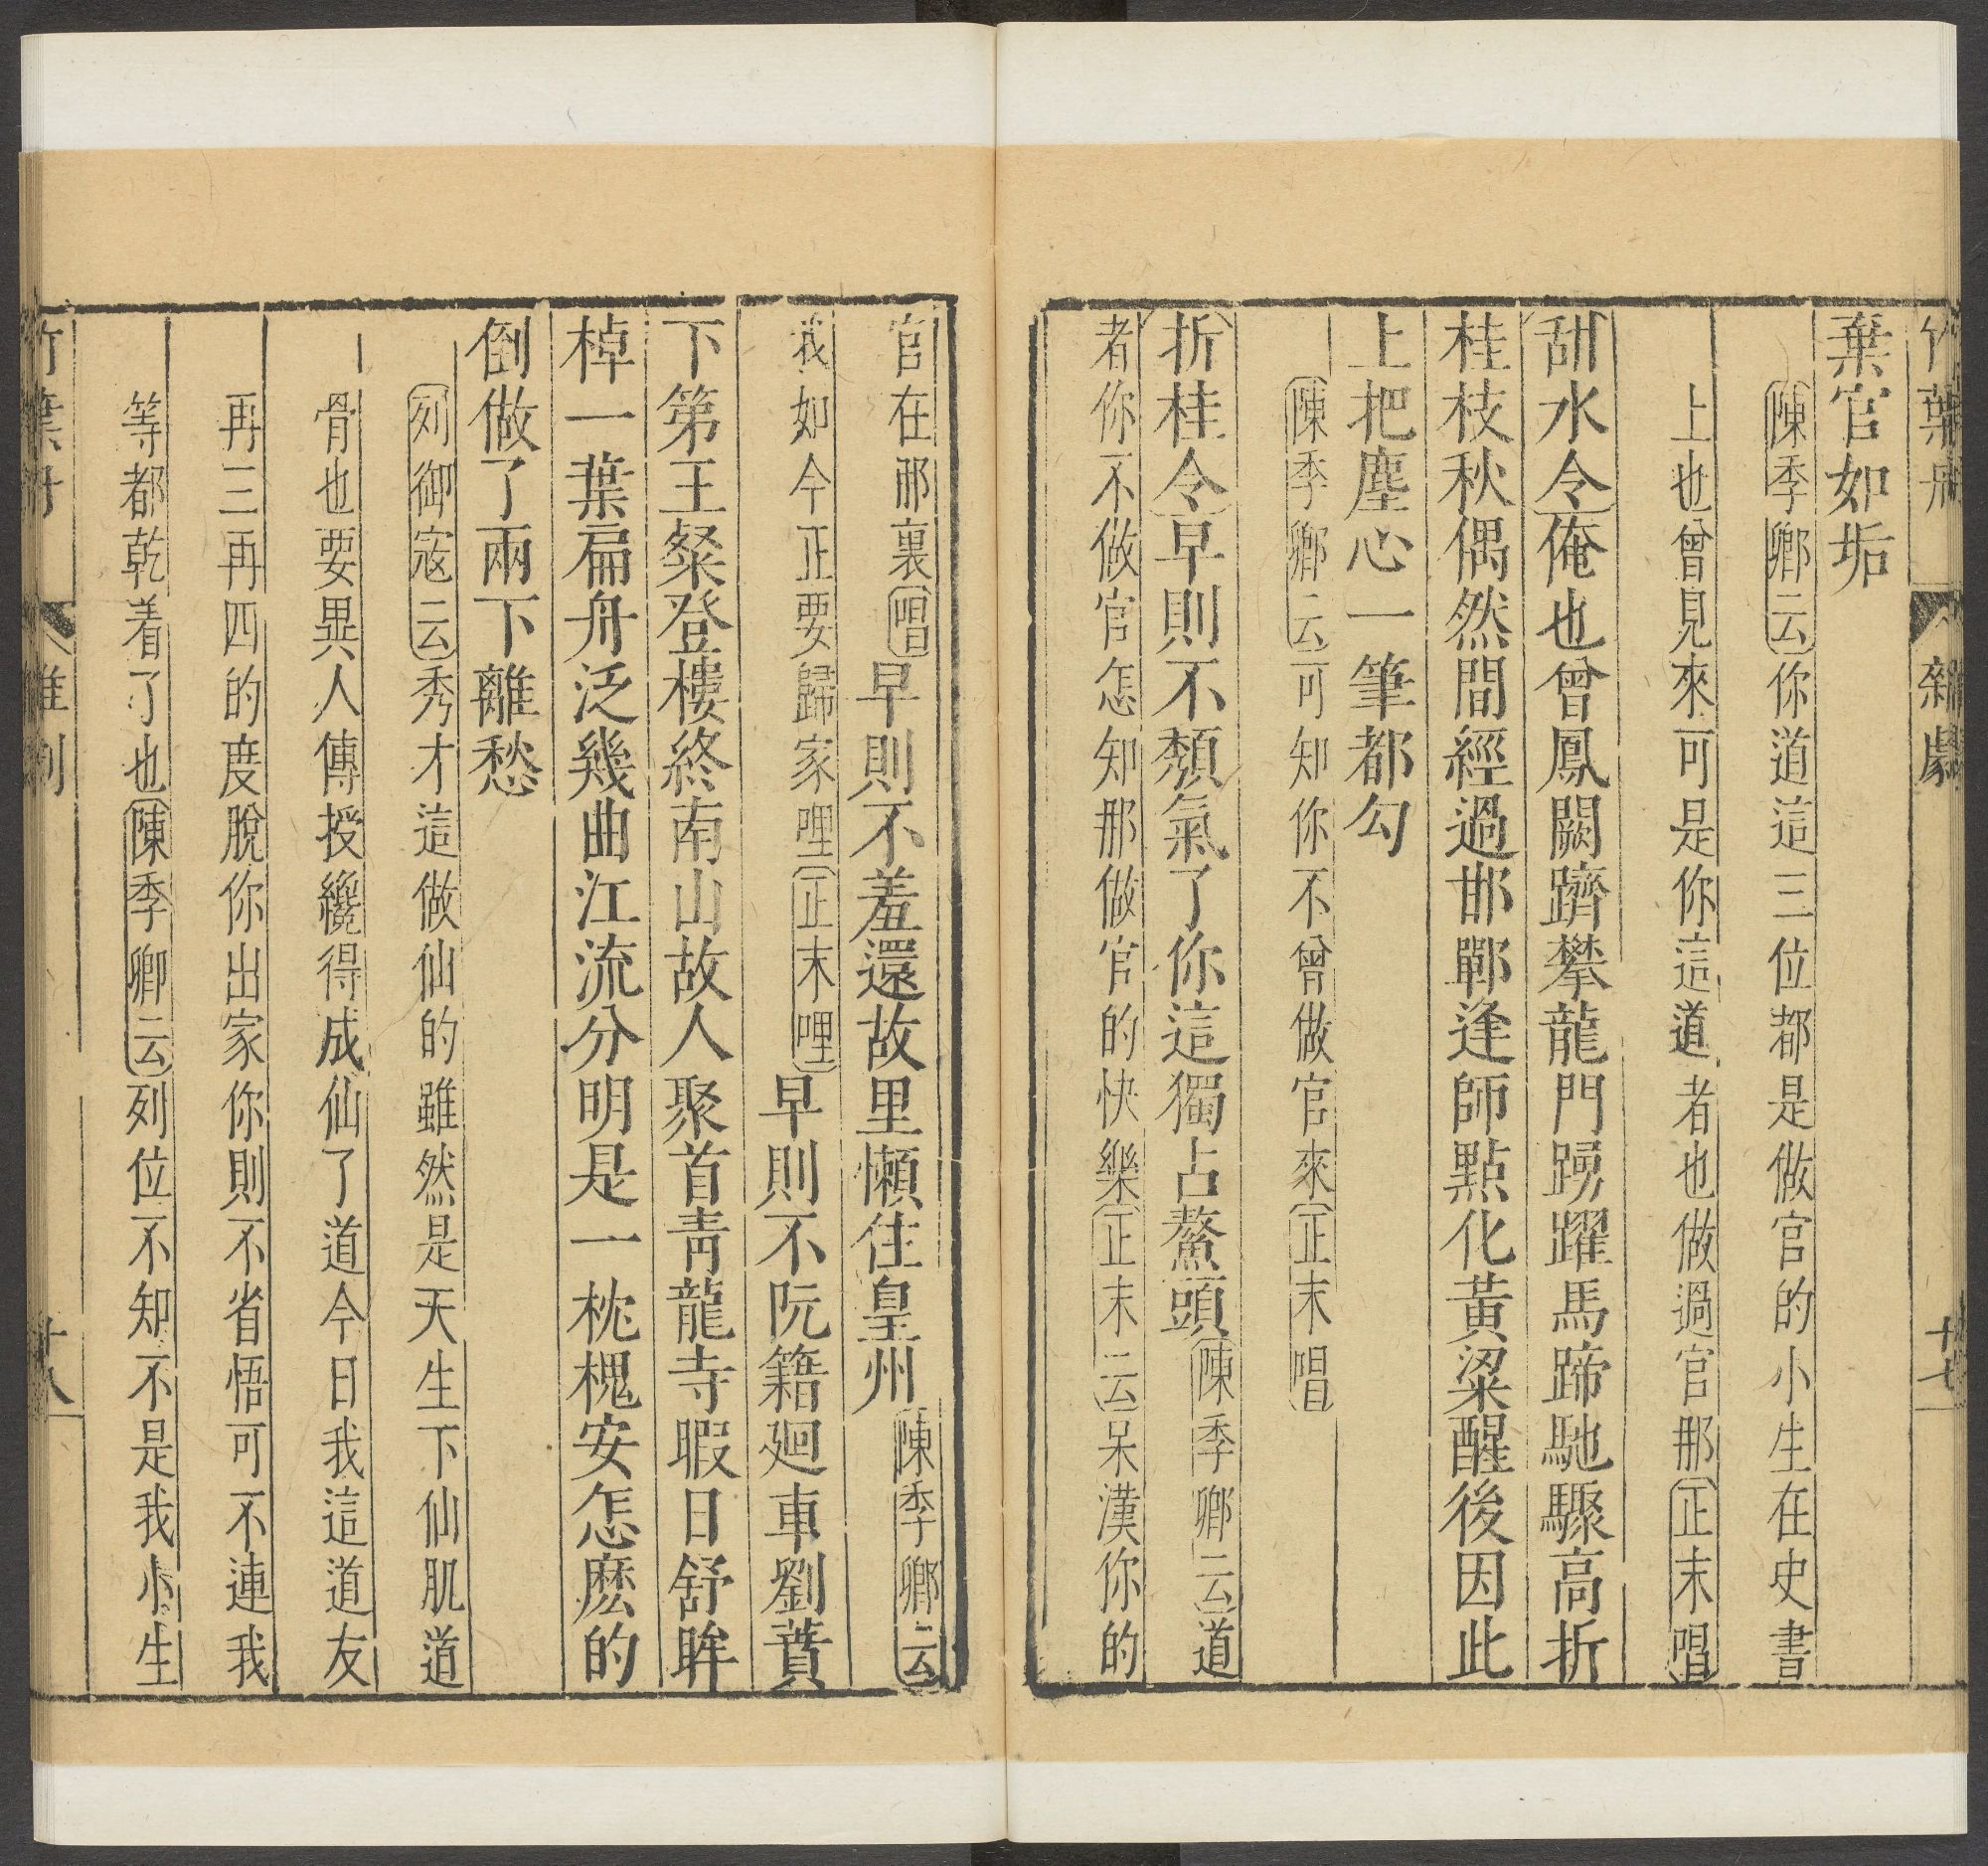 竹葉舟 雜劇 十七
棄官如垢
陳季卿云你道這三位都是做官的小生在史書
上也曾見來可是你這道者也做過官那正末唱
甜水令俺也曾鳳闕躋攀龍門踴躍馬蹄馳驟高折
桂枝秋偶然間經過邯鄲逢師點化黃粱醒後因此
上把塵心一筆都勾
陳季卿云可知你不曾做官來正末唱
折桂令早則不頹氣了你這獨占鰲頭陳季卿云道
者你不做官怎知那做官的快樂正末云呆漢你的
官在那裏唱早則不羞還故里懶住皇州陳季卿云
我如今正要歸家哩正末哩早則不阮籍廻車劉蕡
下第王粲登樓終南山故人聚首青龍寺暇日舒眸
棹一葉扁舟泛幾曲江流分明是一枕槐安怎麽的
倒做了兩下離愁
列御寇云秀才這做仙的雖然是天生下仙肌道
骨也要異人傳授纔得成仙了道今日我這道友
再三再四的度脫你出家你則不省悟可不連我
等都乾着了也陳季卿云列位不知不是我小生
竹葉舟 雜劇 十八